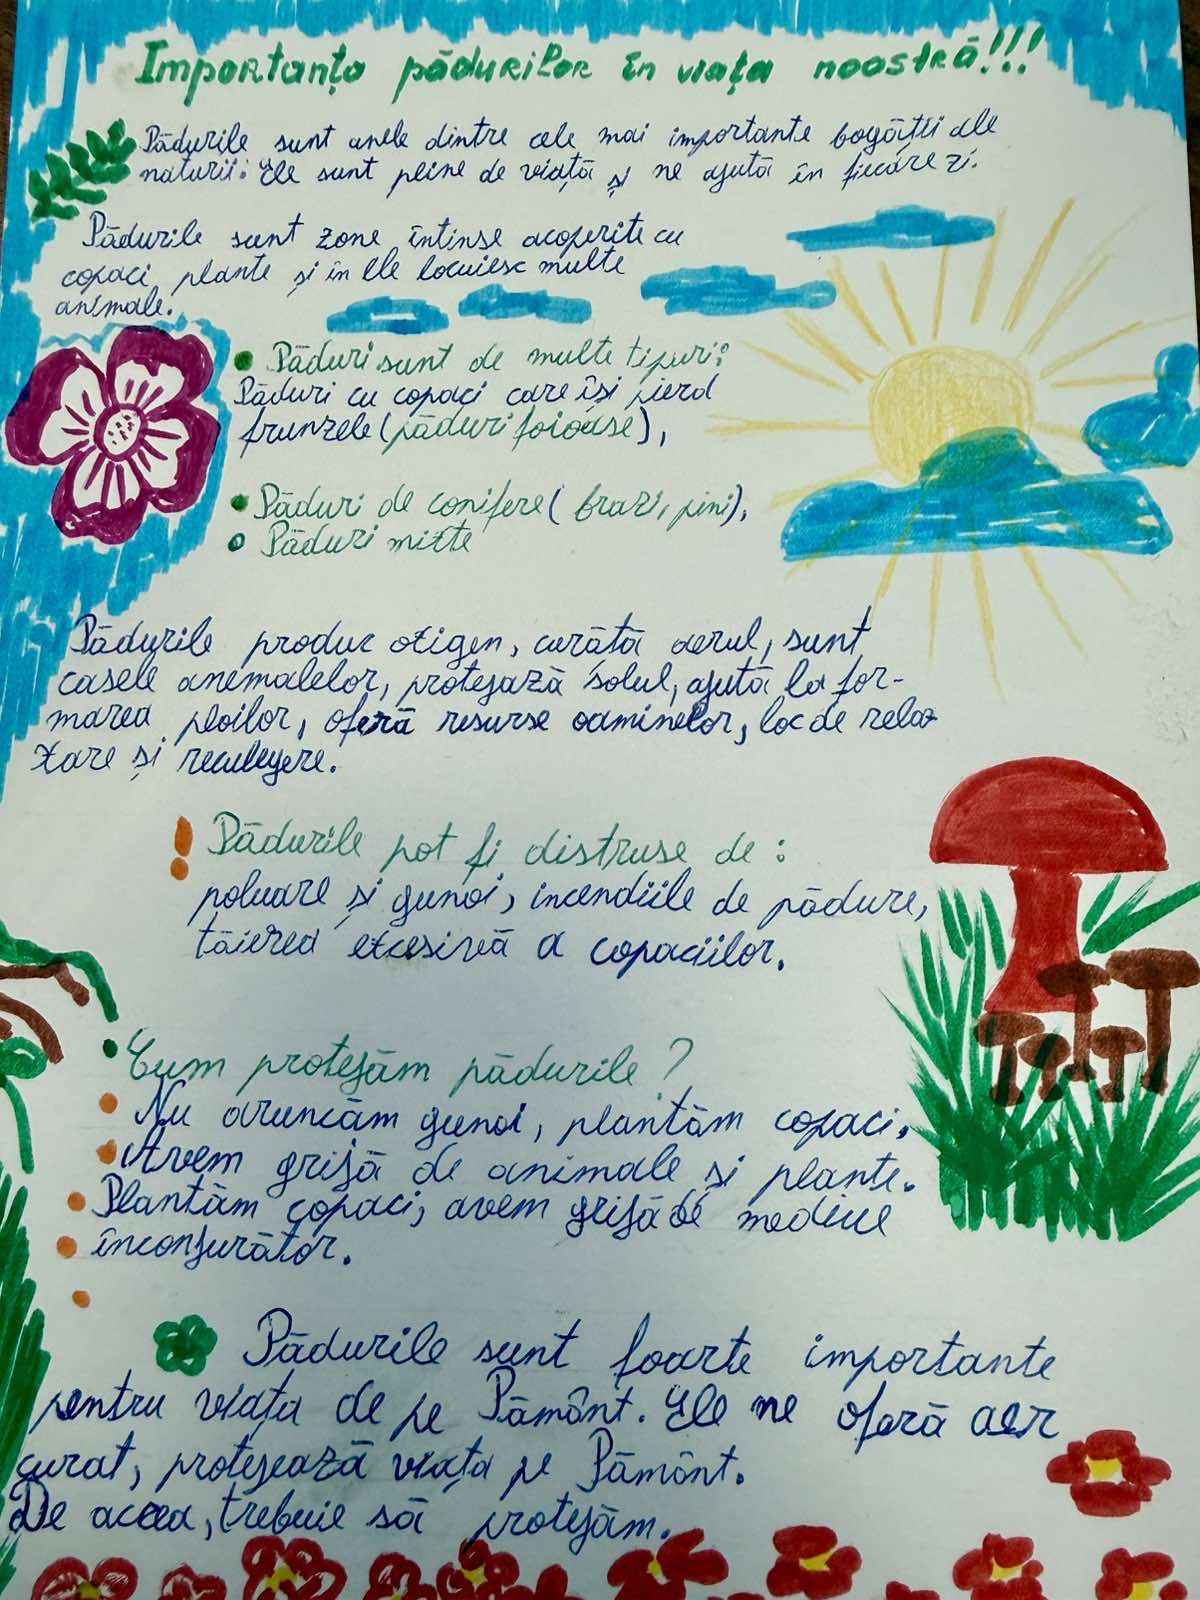 Importanța pădurilor în viața noastră!!!
Pădurile sunt unele dintre cele mai importante bogății ale
naturii: Ele sunt pline de viață și ne ajută în fiecare zi.
Pădurile sunt zone întinse acoperite cu
copaci plante și în ele locuiesc multe
animale.
Păduri sunt de multe tipuri:
Păduri cu copaci care își pierd
frunzele (păduri foioase),
Păduri de conifere (brazi, pini),
Păduri mixte
Pădurile produc oxigen, curăță aerul, sunt
casele animalelor, protejază solul, ajută la for-
marea ploilor, oferă resurse oaminelor, loc de rela
xare și reculegere.
! Pădurile pot fi distruse de:
poluare și gunoi, incendiile de pădure,
tăierea excesivă a copaciilor.
Cum protejăm pădurile?
Nu aruncăm gunoi, plantăm copaci,
Avem grijă de animale și plante.
Plantăm copaci, avem grijă de mediul
înconjurător.
Pădurile sunt foarte importante
pentru viața de pe Pământ. Ele ne oferă aer
curat, protejează viața pe Pământ.
De aceea, trebuie să protejăm.